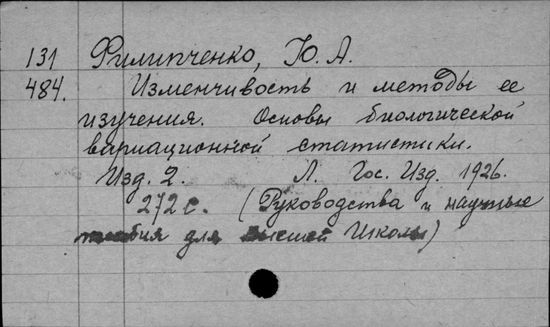 131 Филипченко, Ю. А.
484. Изменчивость и методы ее
изучения. Основы биологической
вариационной статистики.
Изд. 2. Л. Гос. Изд. 1926.
272 с. (Руководства и научные
пособия для высшей школы)